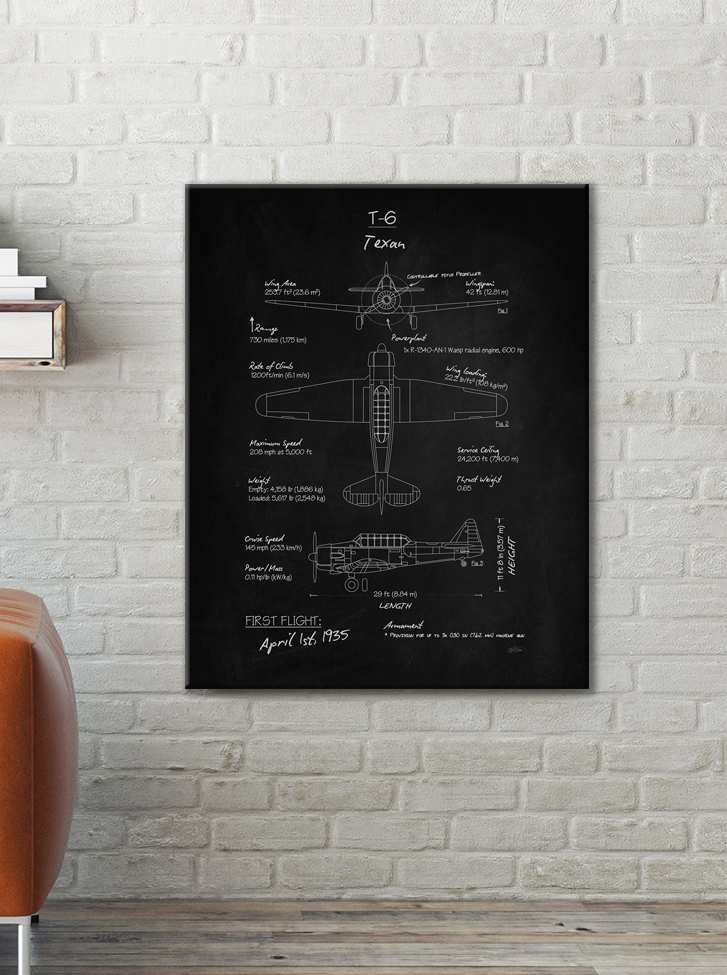 T-6
Texan
CONTROLLABLE PITCH PROPELLER
Wing Area
253.7 ft² (23.6 m²)
Wingspan:
42 ft (12.81 m)
Fig 1
Range
730 miles (1,175 km)
Powerplant
1x R-1340-AN-1 Wasp radial engine, 600 hp
Rate of Climb
1200ft/min (6.1 m/s)
Wing loading:
22.2 lb/ft² (108 kg/m²)
Fig 2
Maximum Speed
208 mph at 5,000 ft
Service Ceiling
24,200 ft (7,400 m)
Weight
Empty: 4,158 lb (1,886 kg)
Loaded: 5,617 lb (2,548 kg)
Thrust Weight
0.65
Cruise Speed
145 mph (233 km/h)
Fig 3
11 ft 8 in (3.57 m)
HEIGHT
Power/Mass
0.11 hp/lb (kW/kg)
29 ft (8.84 m)
LENGTH
FIRST FLIGHT:
April 1st, 1935
Armament
* PROVISION FOR UP TO 3x 0.30 IN (7.62 MM) MACHINE GUN